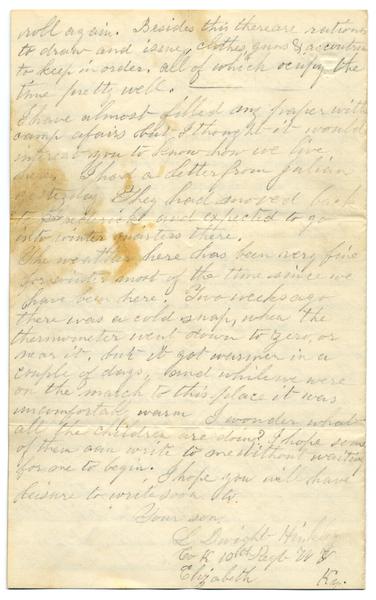 roll again. Besides this there are rations
to draw and issue, clothes, guns & accoutrem
to keep in order. all of which ocupy the
time pretty well.
I have almost filled my paper with
camp afairs but I thought it would
interest you to know how we live
here. I had a letter from Julian
yesterday They had moved back
to Frederick and expected to go
into winter quarters there.
The weather here has been very fine
for winter most of the time since we
have been here. Two weeks ago
there was a cold snap, when the
thermometer went down to zero, or
near it, but it got warmer in a
couple of days, and while we were
on the march to this place it was
uncomfortably warm I wonder what
all the children are doing? I hope some
of them can write to me without waiting
for me to begin. I hope you will have
leisure to write soon to.
Your son,
L Dwight
Co K 10th Regt
Elizabeth Ky.